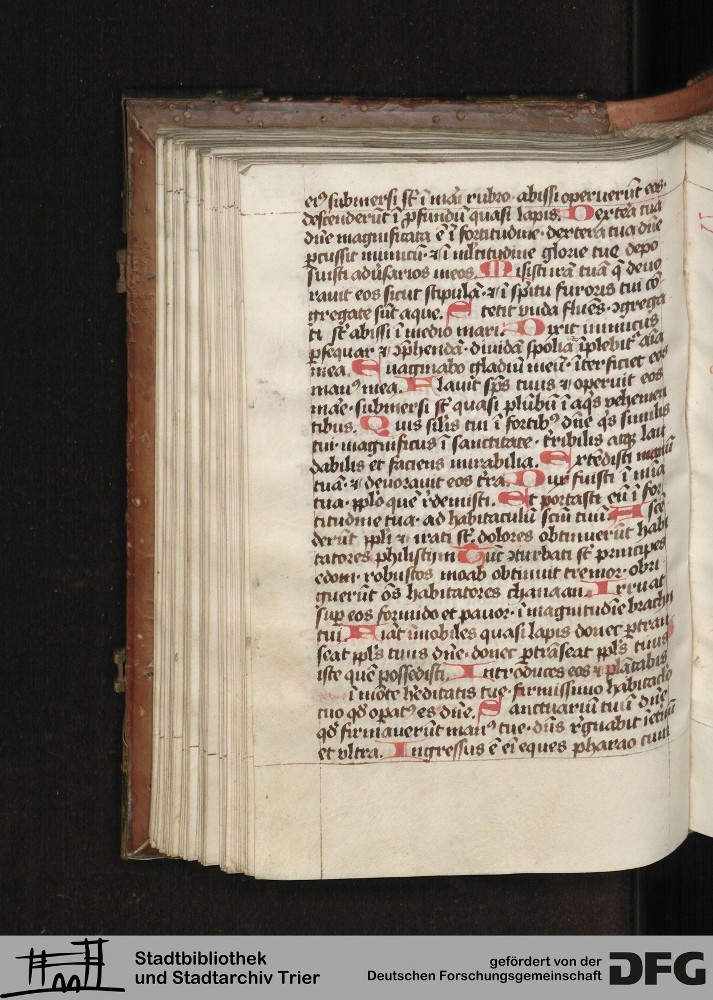 eiꝰ submersi st̄ ī mari rubro · abissi operuerūt eos ·
descenderūt ī ꝓfundū quasi lapis. Dextera tua
dn̄e magnificata ē ī fortitudine · dextera tua dn̄e
ꝑcussit inimicū · ⁊ ī mltitudine glorie tue depo
suisti adūsarios meos. Misisti irā tuā q̄ deuo
rauit eos sicut stipulā · ⁊ ī spiritu furoris tui cō
gregate sūt aque. Stetit vnda fluēs · ꝯgrega
ti st̄ abissi ī medio mari. Dixit inimicus
ꝑsequar ⁊ cōp̄hendā · diuidā spolia īplebit᷑ aīa
mea. Euaginabo gladiū meū · īterficiet eos
manꝰ mea. Flauit sps tuus ⁊ operuit eos
mare · submersi st̄ quasi plūbū ī aq̄s vehemen
tibus. Quis silis tui ī fortibꝰ dn̄e q̄s similis
tui · magnificus ī sanctitate · t̄ribilis atqꝫ lau
dabilis et faciens mirabilia. Extēdisti manū
tuā · ⁊ deuorauit eos t̄ra. Dux fuisti ī mīa
tua · pplo quē r̄demisti. Et portasti eū ī for
titudine tua · ad habitaculū scm̄ tuū. Ascē
derūt ppli ⁊ irati st̄ · dolores obtinuerūt habi
tatores philistijm Tūc ꝯturbati st̄ principes
edom · robustos moab obtinuit tremor · obri
guerūt ōs habitatores chanaan. Irruat
suꝑ eos formido et pauor · ī magnitudīe brachij
tui. Fiāt īmobiles quasi lapis donec ꝑtran
seat ppl's tuus dn̄e · donec ꝑtrāseat ppl's tuus
iste quē possedisti. Introduces eos ⁊ plātabis
ī mōte h̄editatis tue · firmissimo habitaclo
tuo qd̄ opatꝰ es dn̄e. Sanctuariū tuū dn̄e
qd̄ firmauerūt manꝰ tue · dn̄s r̄gnabit ī et̄nū
et vltra. Ingressus ē ei eques pharao cum
Stadtbibliothek
und Stadtarchiv Trier
gefördert von der
Deutschen Forschungsgemeinschaft
DFG